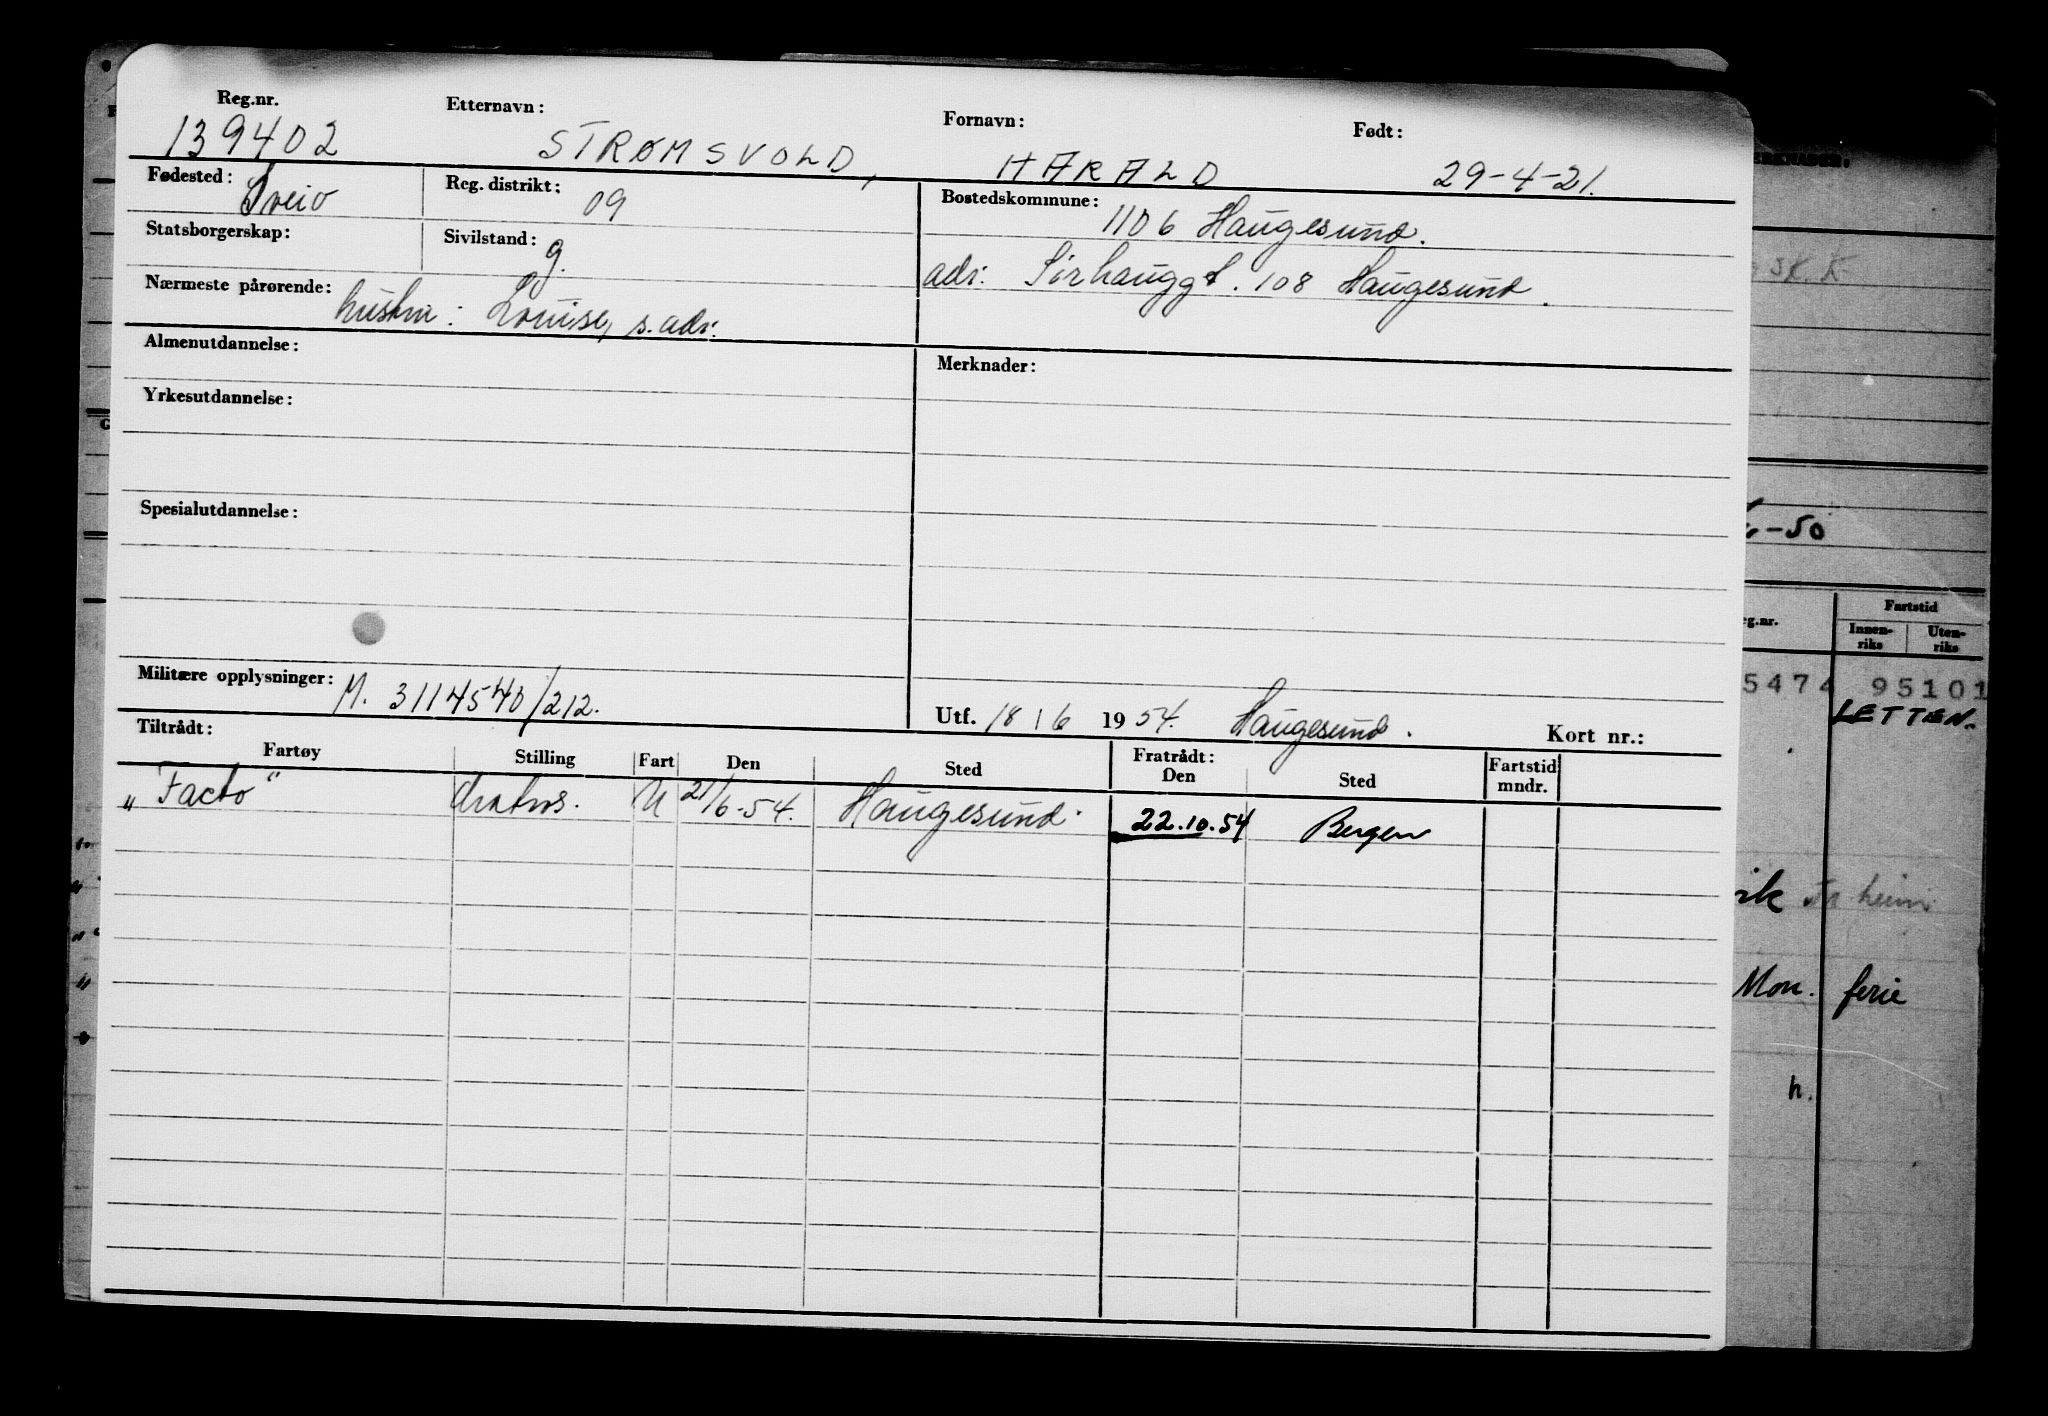 Reg.nr. Etternavn: Fornavn: Født:
139402 STRØMSVOLD, HARALD 29-4-21.
Fødested: Sveio Reg. distrikt: 09 Bostedskommune: 1106 Haugesund.
Statsborgerskap: Sivilstand: g. adr: Sørhauggt. 108 Haugesund.
Nærmeste pårørende: hustru: Louise, s. adr.
Almenutdannelse: Merknader:
Yrkesutdannelse:
Spesialutdannelse:
Militære opplysninger: M. 3114540/212.
Utf. 18/6 1954. Haugesund. Kort nr.:
Tiltrådt: Fratrådt:
Fartøy Stilling Fart Den Sted Den Sted Fartstid mndr.
"Facto" U 21/6-54. Haugesund. 22.10.54 Bergen
ERKNADER.
SK. K
-50
eg.nr. Fartstid
Innen-riks Uten-riks
5474 95101
LETTEN.
ik
Mon. ferie
h.